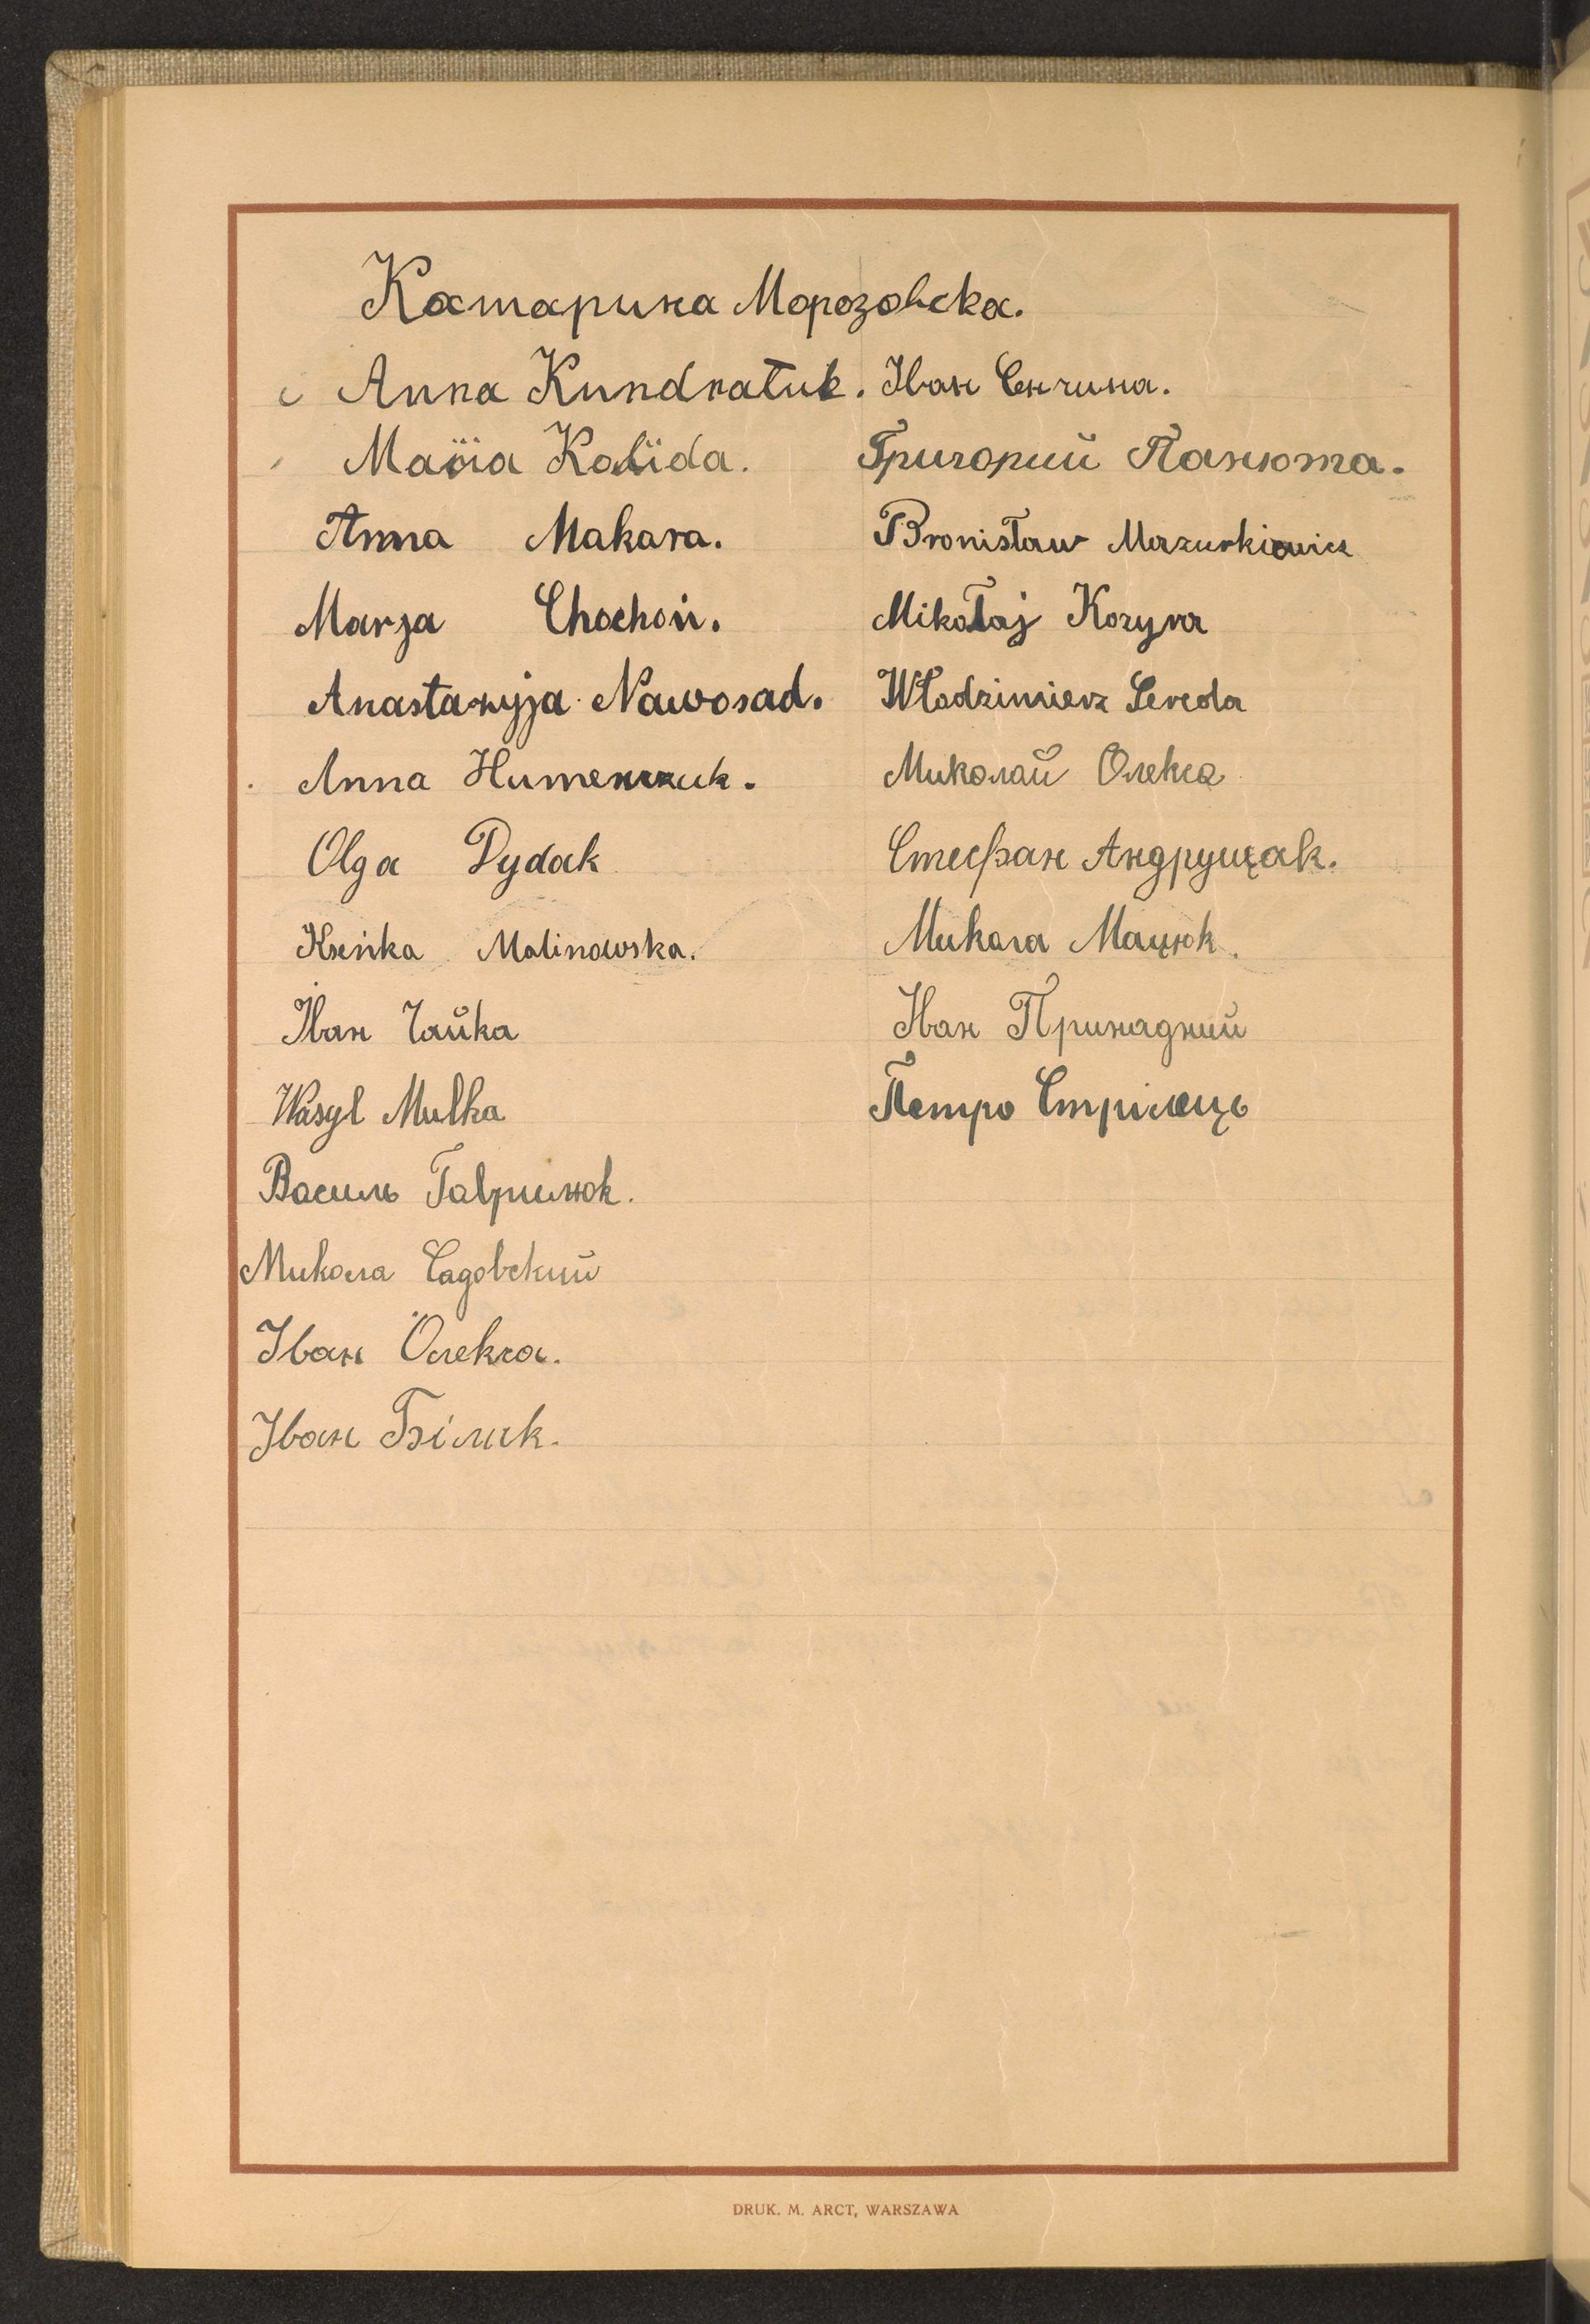 Катарина Морозовска.
Anna Kundratuk. Іван Сенчина.
Григорий Панюта.
Anna Makara. Bronisław Mazurkiewicz
Marja Chochoń. Mikołaj Kozyra
Anastazyja Nawosad. Włodzimierz Sereda
Anna Миколай Олекса
Olga Dydak Стефан Андрущак.
Kseńka Malinowska. Микола Мацюк.
Іван Чайка Іван Принадний
Wasyl Mulka Петро Стрілець
Василь Гаврилюк.
Микола Садовский
Іван Олекса.
Іван Білик.
DRUK. M. ARCT, WARSZAWA